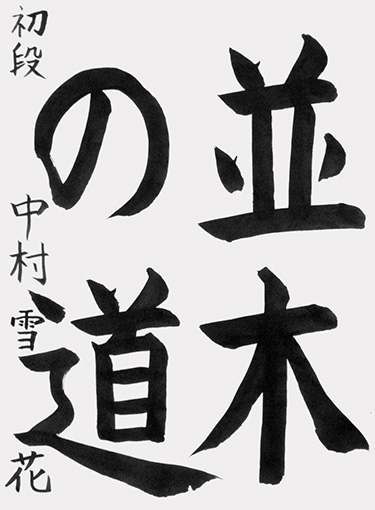 並木
の道
初段 中村雪花